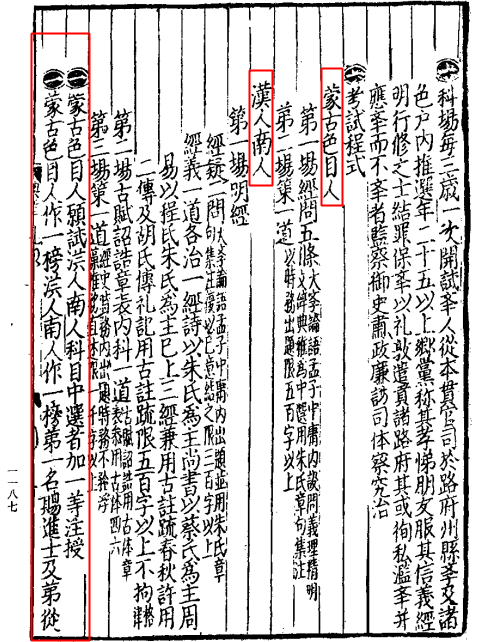 一科場每三歲一次開試舉人從本貫官司於路府州縣及諸
色戶內推選年二十五以上鄉黨稱其孝悌朋友服其信義經
明行修之士結罪保舉以礼敦遣貢諸路府其或徇私濫舉并
應舉而不舉者監察御史肅政廉訪司体察究治
一考試程式
蒙古色目人
第一場經問五條大學論語孟子中庸內設問義理精明
文辞典雅為中選用朱氏章句集註
第二場策一道以時務出題限五百字以上
漢人南人
第一場明經
經疑二問大學論語孟子中庸內出題並用朱氏章
句集註復以己意結之限三百字以上
經義一道各治一經詩以朱氏為主尚書以蔡氏為主周
易以程氏朱氏為主已上三經兼用古註疏春秋許用
三傳及胡氏傳礼記用古註疏限五百字以上不拘格律
第二場古賦詔誥章表內科一道古賦詔誥用古体章
表參用古体四六
第三場策一道經史時務內出題不矜浮
藻惟務直述限一千字以上
一蒙古色目人願試漢人南人科目中選者加一等注授
一蒙古色目人作一榜漢人南人作一榜第一名賜進士及第從
一一八七